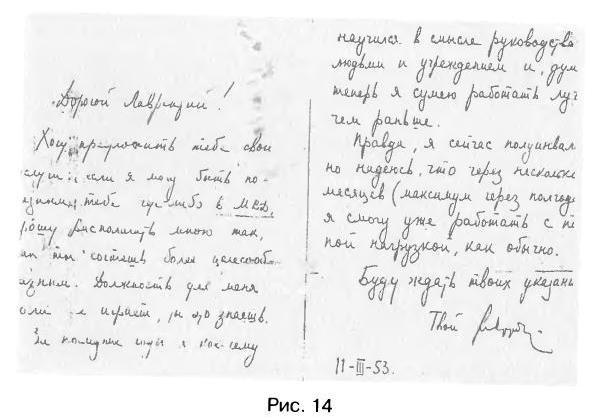 Дорогой Лаврентий!
Хочу предложить тебе свои
услуги: если я могу быть по-
лезным тебе где-либо в МВД,
прошу располагать мною так,
как ты сочтешь более целесооб-
разным. Должность для меня
роли не играет, ты это знаешь.
За последние годы я кое-чему
научился в смысле руководства
людьми и учреждением и, дум
теперь я сумею работать луч
чем раньше.
Правда, я сейчас полуинвал
но надеюсь, что через нескольк
месяцев (максимум через полгода
я смогу уже работать с по
ной нагрузкой, как обычно.
Буду ждать твоих указани
Твой
11-III-53.
Рис. 14